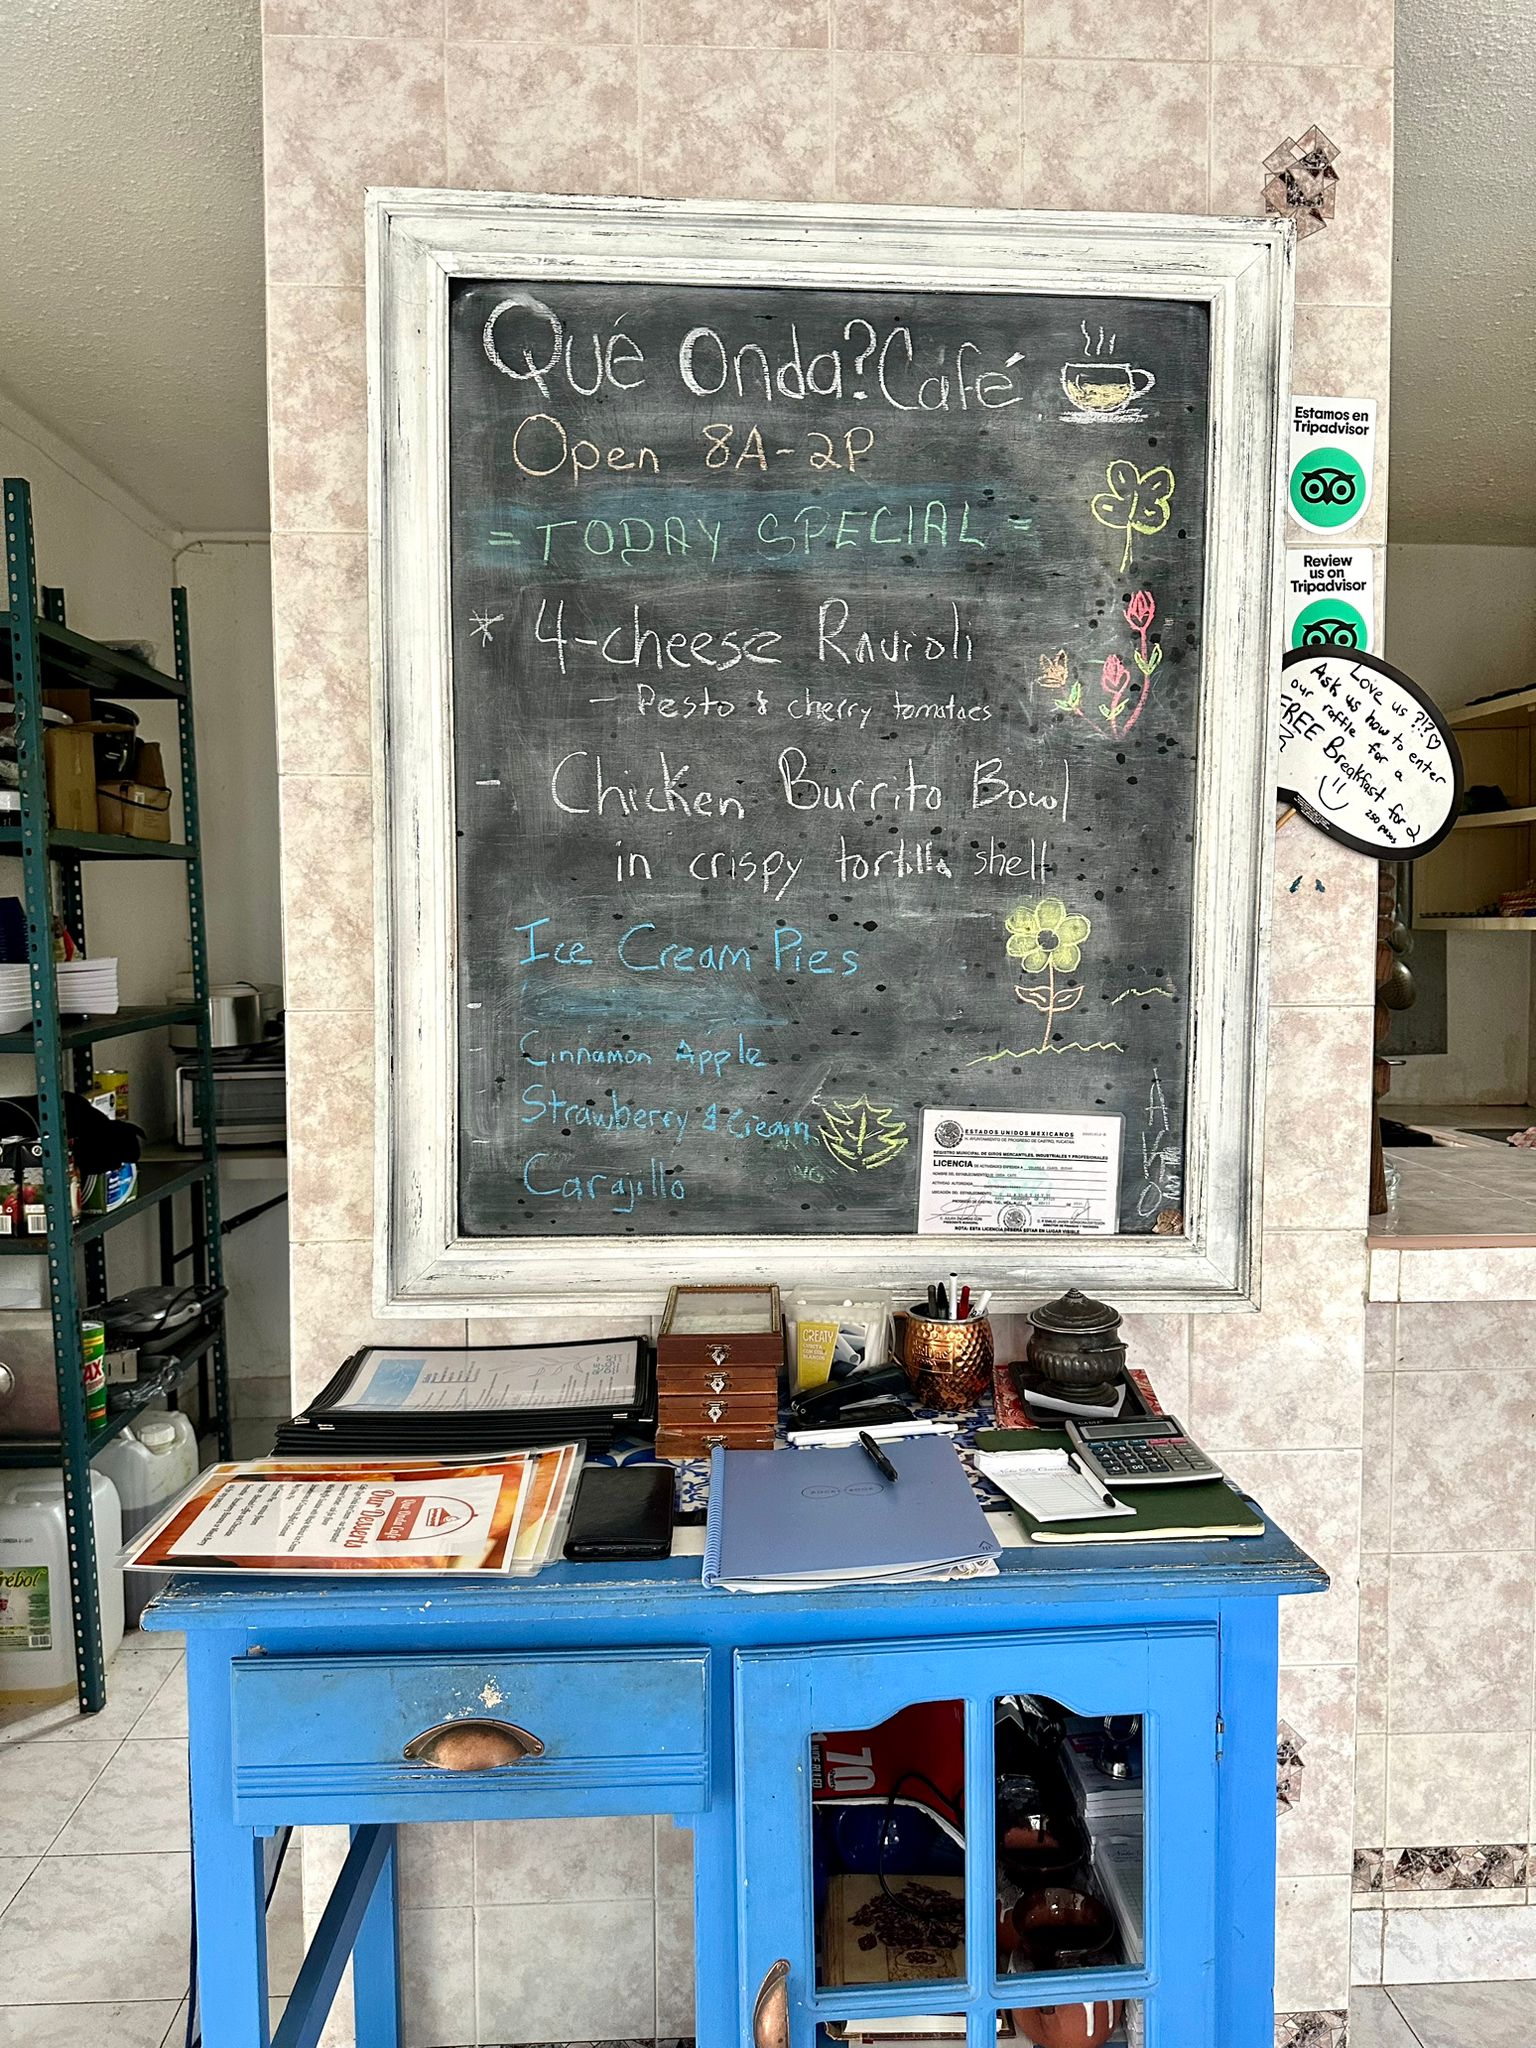 Qué Onda? Café
Open 8A-2P
= TODAY SPECIAL =
* 4-cheese Ravioli
- Pesto & cherry tomatoes
- Chicken Burrito Bowl
in crispy tortilla shell
Ice Cream Pies
- Cinnamon Apple
- Strawberry & Cream
- Carajillo
Estamos en
Tripadvisor
Review
us on
Tripadvisor
Love us ?!? ♡
Ask us how to enter
our raffle for a
FREE Breakfast for 2
250 pesos
ESTADOS UNIDOS MEXICANOS
H. AYUNTAMIENTO DE PROGRESO DE CASTRO, YUCATAN
REGISTRO MUNICIPAL DE GIROS MERCANTILES, INDUSTRIALES Y PROFESIONALES
LICENCIA
NOTA: ESTA LICENCIA DEBERÁ ESTAR EN LUGAR VISIBLE
CREATY
Que Onda Café
Our Desserts
70